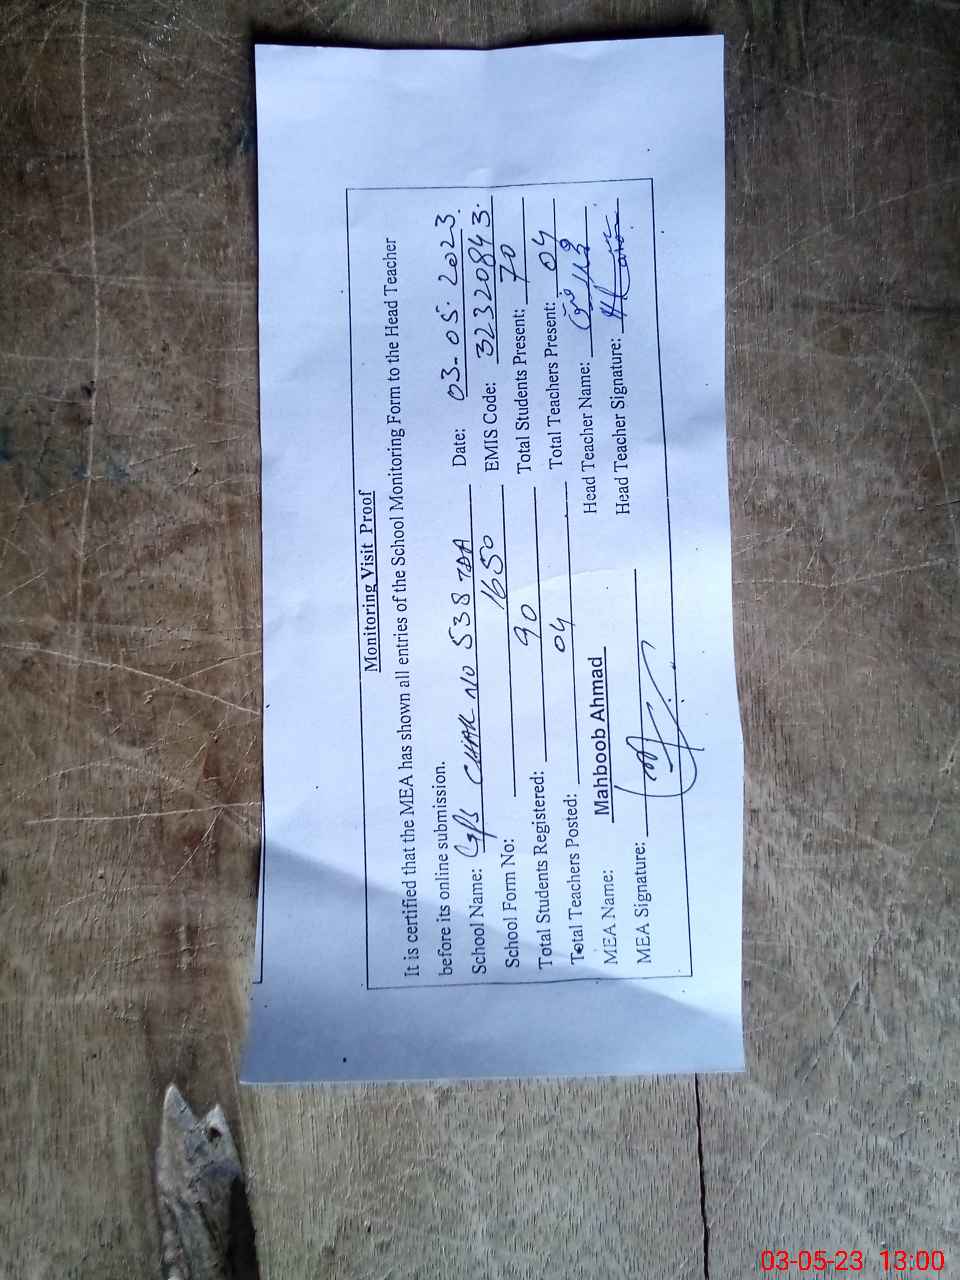 Monitoring Visit Proof
It is certified that the MEA has shown all entries of the School Monitoring Form to the Head Teacher
before its online submission.
School Name: GPS CHAK NO 538 TDA Date: 03-05-2023.
School Form No: 1650 EMIS Code: 32320843.
Total Students Registered: 90 Total Students Present: 70
Total Teachers Posted: 04 Total Teachers Present: 04
MEA Name: Mahboob Ahmad Head Teacher Name:
MEA Signature: Head Teacher Signature:
03-05-23 13:00